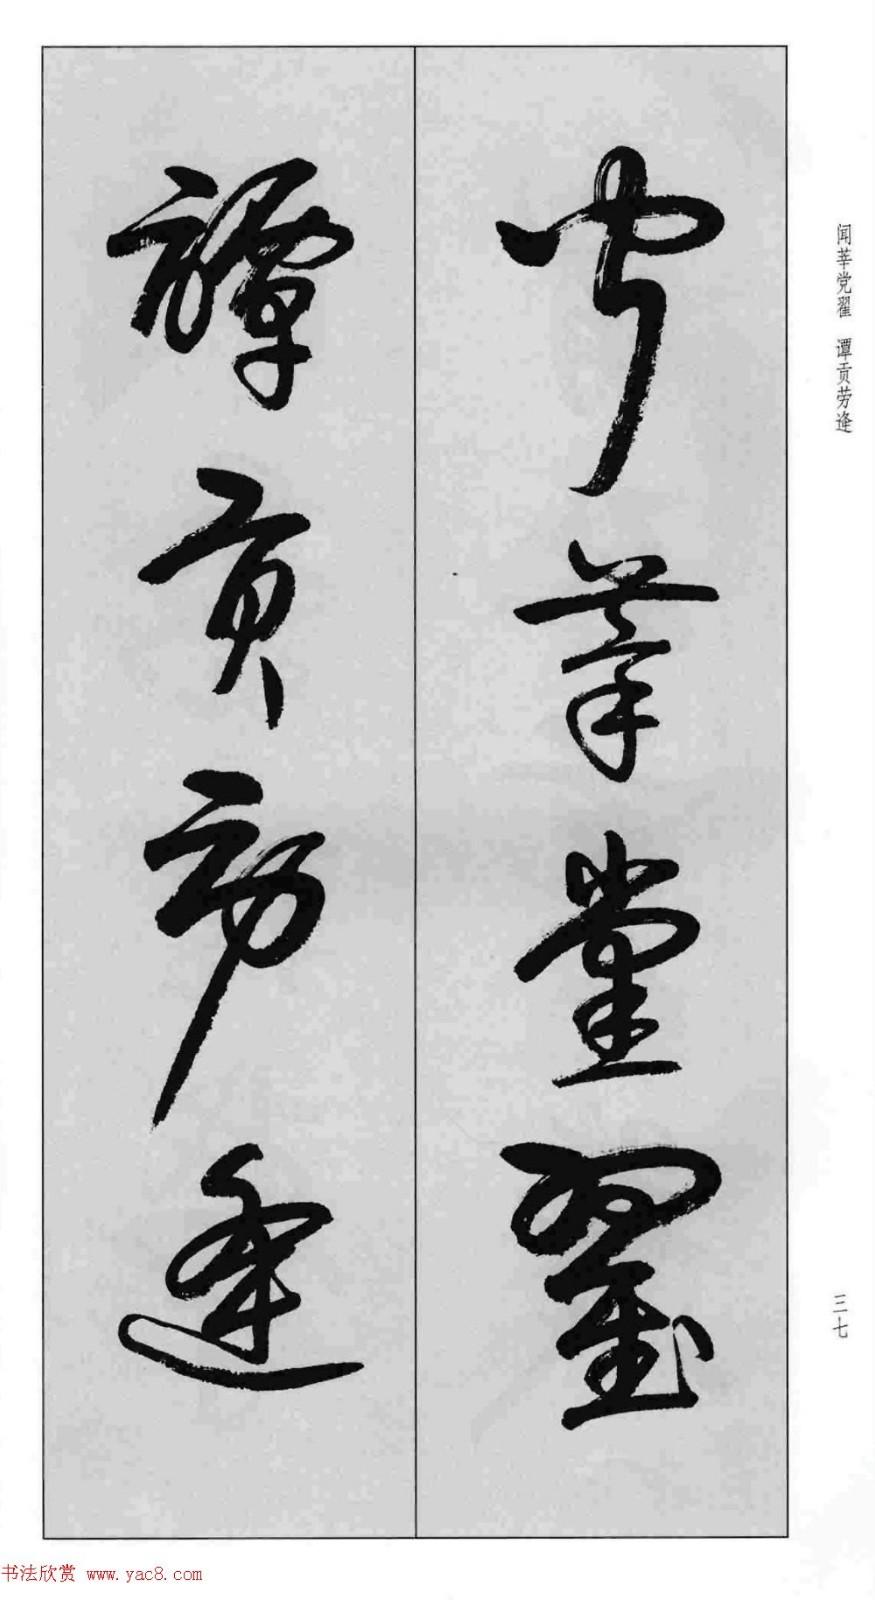 闻莘党翟
譚贡劳逢
闻莘党翟 谭贡劳逢
三七
书法欣赏 www.yac8.com